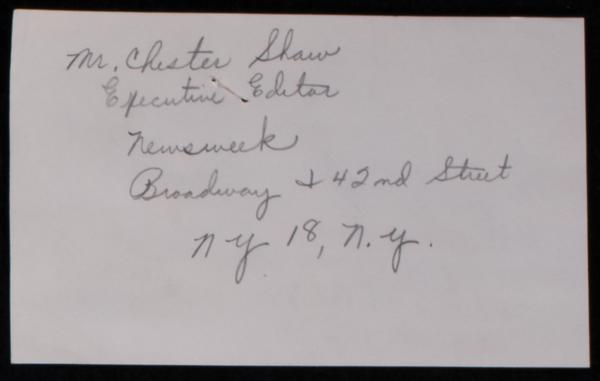 Mr. Chester Shaw
Executive Editor
Newsweek
Broadway & 42nd Street
NY 18, N.Y.